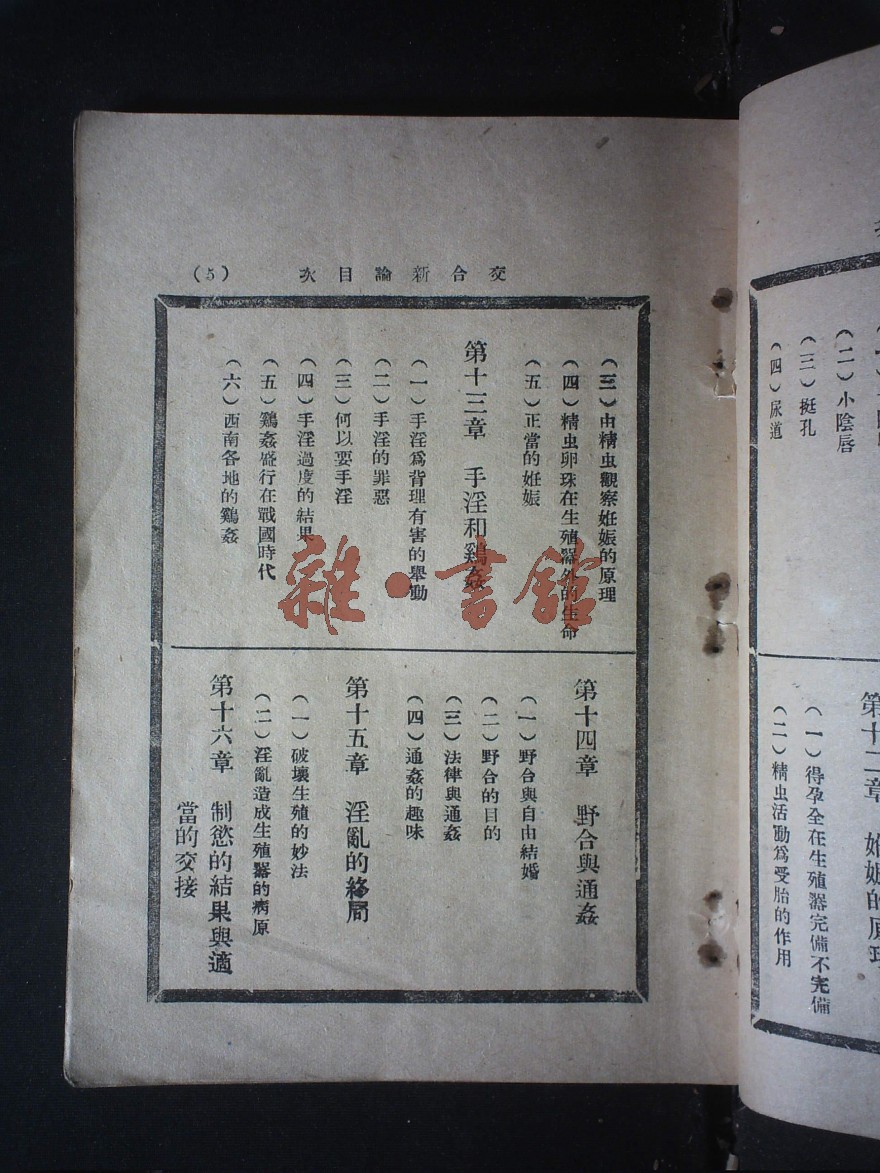 交合新論目次
(5)
(三)由精虫觀察妊娠的原理
(四)精虫卵珠在生殖器外的生命
(五)正當的妊娠
第十三章 手淫和鷄姦
(一)手淫爲背理有害的舉動
(二)手淫的罪惡
(三)何以要手淫
(四)手淫過度的結果
(五)鷄姦盛行在戰國時代
(六)西南各地的鷄姦
第十四章 野合與通姦
(一)野合與自由結婚
(二)野合的目的
(三)法律與通姦
(四)通姦的趣味
第十五章 淫亂的終局
(一)破壞生殖的妙法
(二)淫亂造成生殖器的病原
第十六章 制慾的結果與適
當的交接
雜·書館
(二)小陰唇
(三)挺孔
(四)尿道
第十二章 妊娠的原理
(一)得孕全在生殖器完備不完備
(二)精虫活動爲受胎的作用